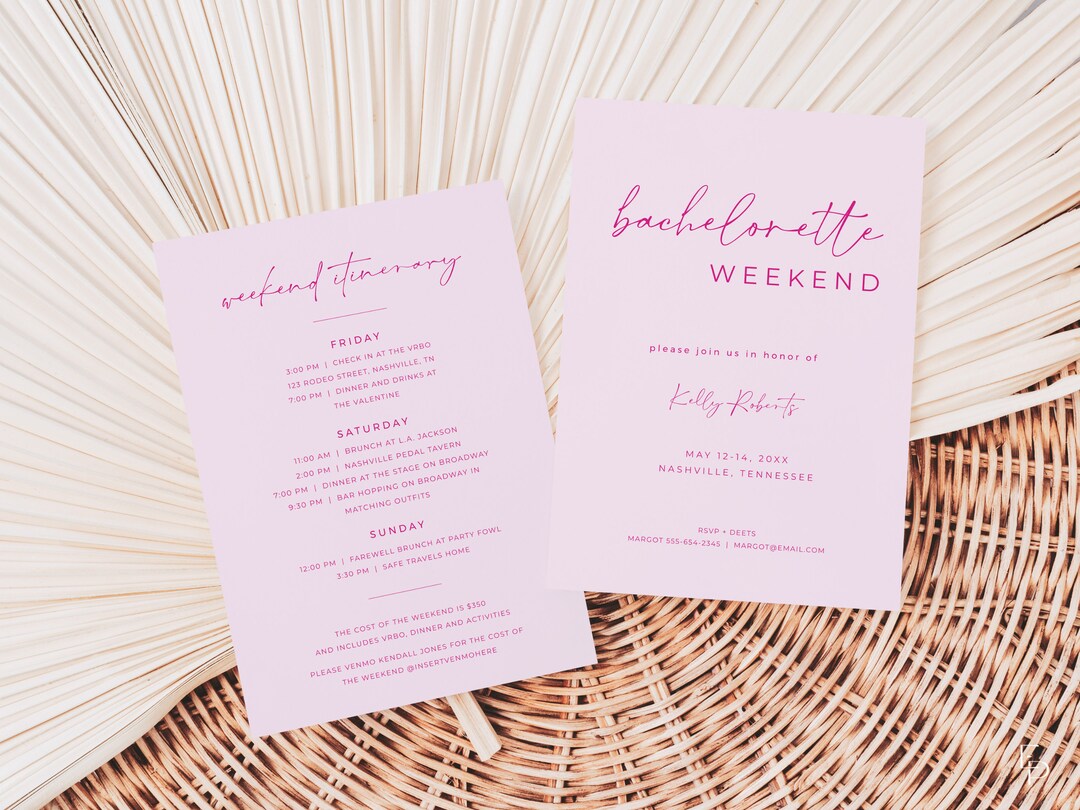 weekend itinerary
FRIDAY
3:00 PM | CHECK IN AT THE VRBO
123 RODEO STREET, NASHVILLE, TN
7:00 PM | DINNER AND DRINKS AT
THE VALENTINE
SATURDAY
11:00 AM | BRUNCH AT L.A. JACKSON
2:00 PM | NASHVILLE PEDAL TAVERN
7:00 PM | DINNER AT THE STAGE ON BROADWAY
9:30 PM | BAR HOPPING ON BROADWAY IN
MATCHING OUTFITS
SUNDAY
12:00 PM | FAREWELL BRUNCH AT PARTY FOWL
3:30 PM | SAFE TRAVELS HOME
THE COST OF THE WEEKEND IS $350
AND INCLUDES VRBO, DINNER AND ACTIVITIES
PLEASE VENMO KENDALL JONES FOR THE COST OF
THE WEEKEND @INSERTVENMOHERE
bachelorette
WEEKEND
please join us in honor of
Kelly Roberts
MAY 12-14, 20XX
NASHVILLE, TENNESSEE
RSVP + DEETS
MARGOT 555-654-2345 | MARGOT@EMAIL.COM